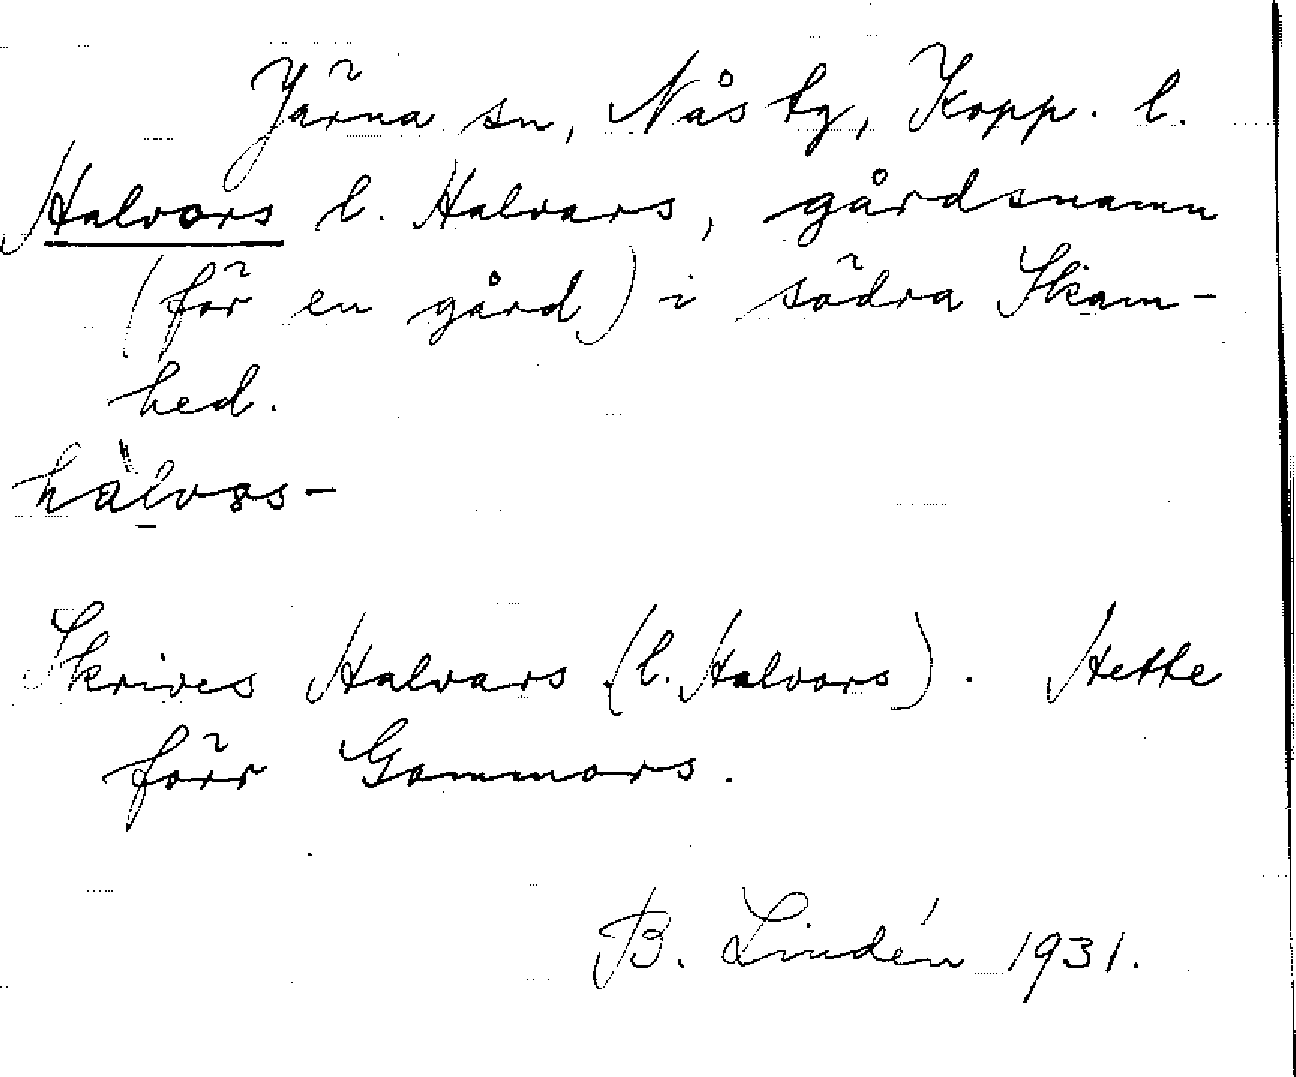 Järna sn, Nås tg, Kopp. l.
Halvors l. Halvars, gårdsnamn
(för en gård) i södra Skam-
hed.
hälvɷs-
Skrives Halvars (l. Halvors). Hette
förr Gammors.
B. Lindén 1931.